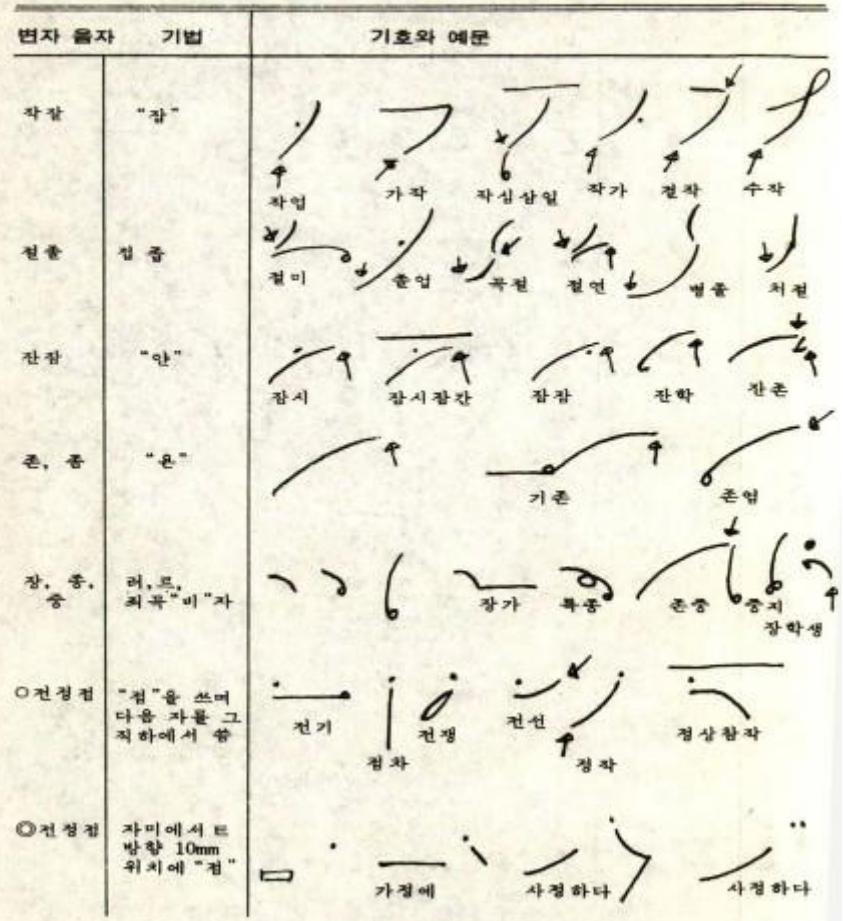 변자 음자 기법 기호와 예문
작잘 "잠"
작업 가작 작심삼일 작가 걸작 수작
절졸 접 좁
절미 졸업 곡절 절연 병졸 처절
잔잠 "안"
잠시 잠시잠간 잠잠 잔학 잔존
존, 좀 "온"
기존 존엄
장, 종, 중 러,르, 좌곡"비"자
장가 특종 존중 중지
장학생
○전정점 "점"을 쓰며 다음 자를 그 직하에서 씀
전기 전쟁 전선
점차 정작 정상참작
◎전정점 자미에서 ㅌ 방향 10mm 위치에 "점"
가정에 사정하다 사정하다